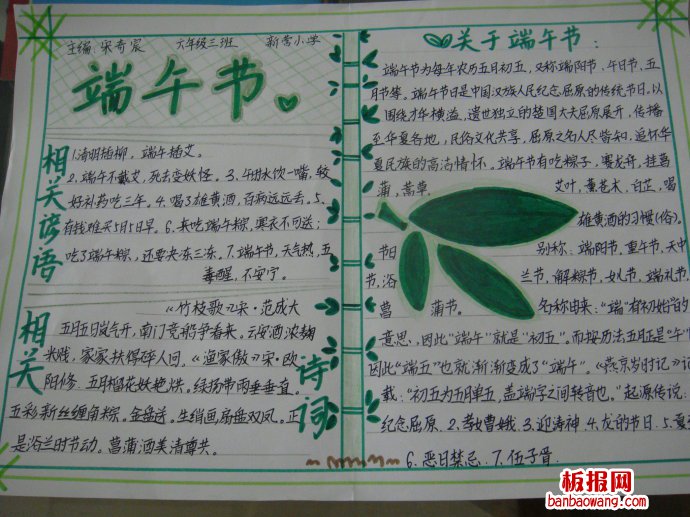 主编:宋奇宸 六年级三班 新营小学
端午节
相关谚语
1.清明插柳,端午插艾。
2.端午不戴艾,死去变妖怪。3.午时水饮一嘴,较
好补药吃三年。4.喝了雄黄酒,百病远远丢。5.
有钱难买5月5日旱。6.未吃端午粽,寒衣不可送;
吃了端午粽,还要冻三冻。7.端午节,天气热,五
毒醒,不安宁。
相关诗词
《竹枝歌》宋·范成大
五月五日岚气开,南门竞船争看来。云安酒浓麹
米贱,家家扶得醉人回。《渔家傲》宋·欧
阳修 五月榴花妖艳烘。绿杨带雨垂垂重。
五彩新丝缠角粽。金盘送。生绡画扇盘双凤。正
是浴兰时节动。菖蒲酒美清尊共。
关于端午节:
端午节为每年农历五月初五,又称端阳节,午日节,五
月节等。端午节日是中国汉族人民纪念屈原的传统节日,以
围绕才华横溢、遗世独立的楚国大夫屈原展开,传播
至华夏各地,民俗文化共享,屈原之名人尽皆知,追怀华
夏民族的高洁情怀。端午节有吃粽子,赛龙舟,挂菖
蒲,蒿草, 艾叶,薰苍术,白芷,喝
雄黄酒的习惯(俗)。
别称:端阳节,重午节,天中
节,浴兰节,解粽节,女儿节,端礼节
菖蒲节。
名称由来:“端”有初始的
意思,因此“端午”就是“初五”。而按历法五月正是“午”
因此“端五”也就渐渐变成了“端午”。《燕京岁时记》记
载:“初五为五月单五,盖端字之间转音也。”起源传说:
纪念屈原、2.孝女曹娥、3.迎涛神 4.龙的节日、5.夏
6.恶日禁忌、7.伍子胥.
板报网
banbaowang.com